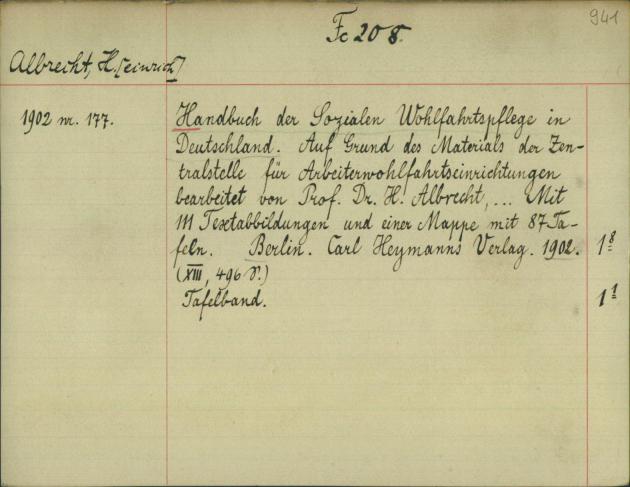 941
Fc 208.
Albrecht, H.[einrich]
1902 nr. 177.
Handbuch der Sozialen Wohlfahrtspflege in
Deutschland. Auf Grund des Materials der Zen-
tralstelle für Arbeiterwohlfahrtseinrichtungen
bearbeitet von Prof. Dr. H. Albrecht, ... Mit
111 Textabbildungen und einer Mappe mit 87 Ta-
feln. Berlin. Carl Heymanns Verlag. 1902. 1 8
(XIII, 496 S.)
Tafelband. 1 1